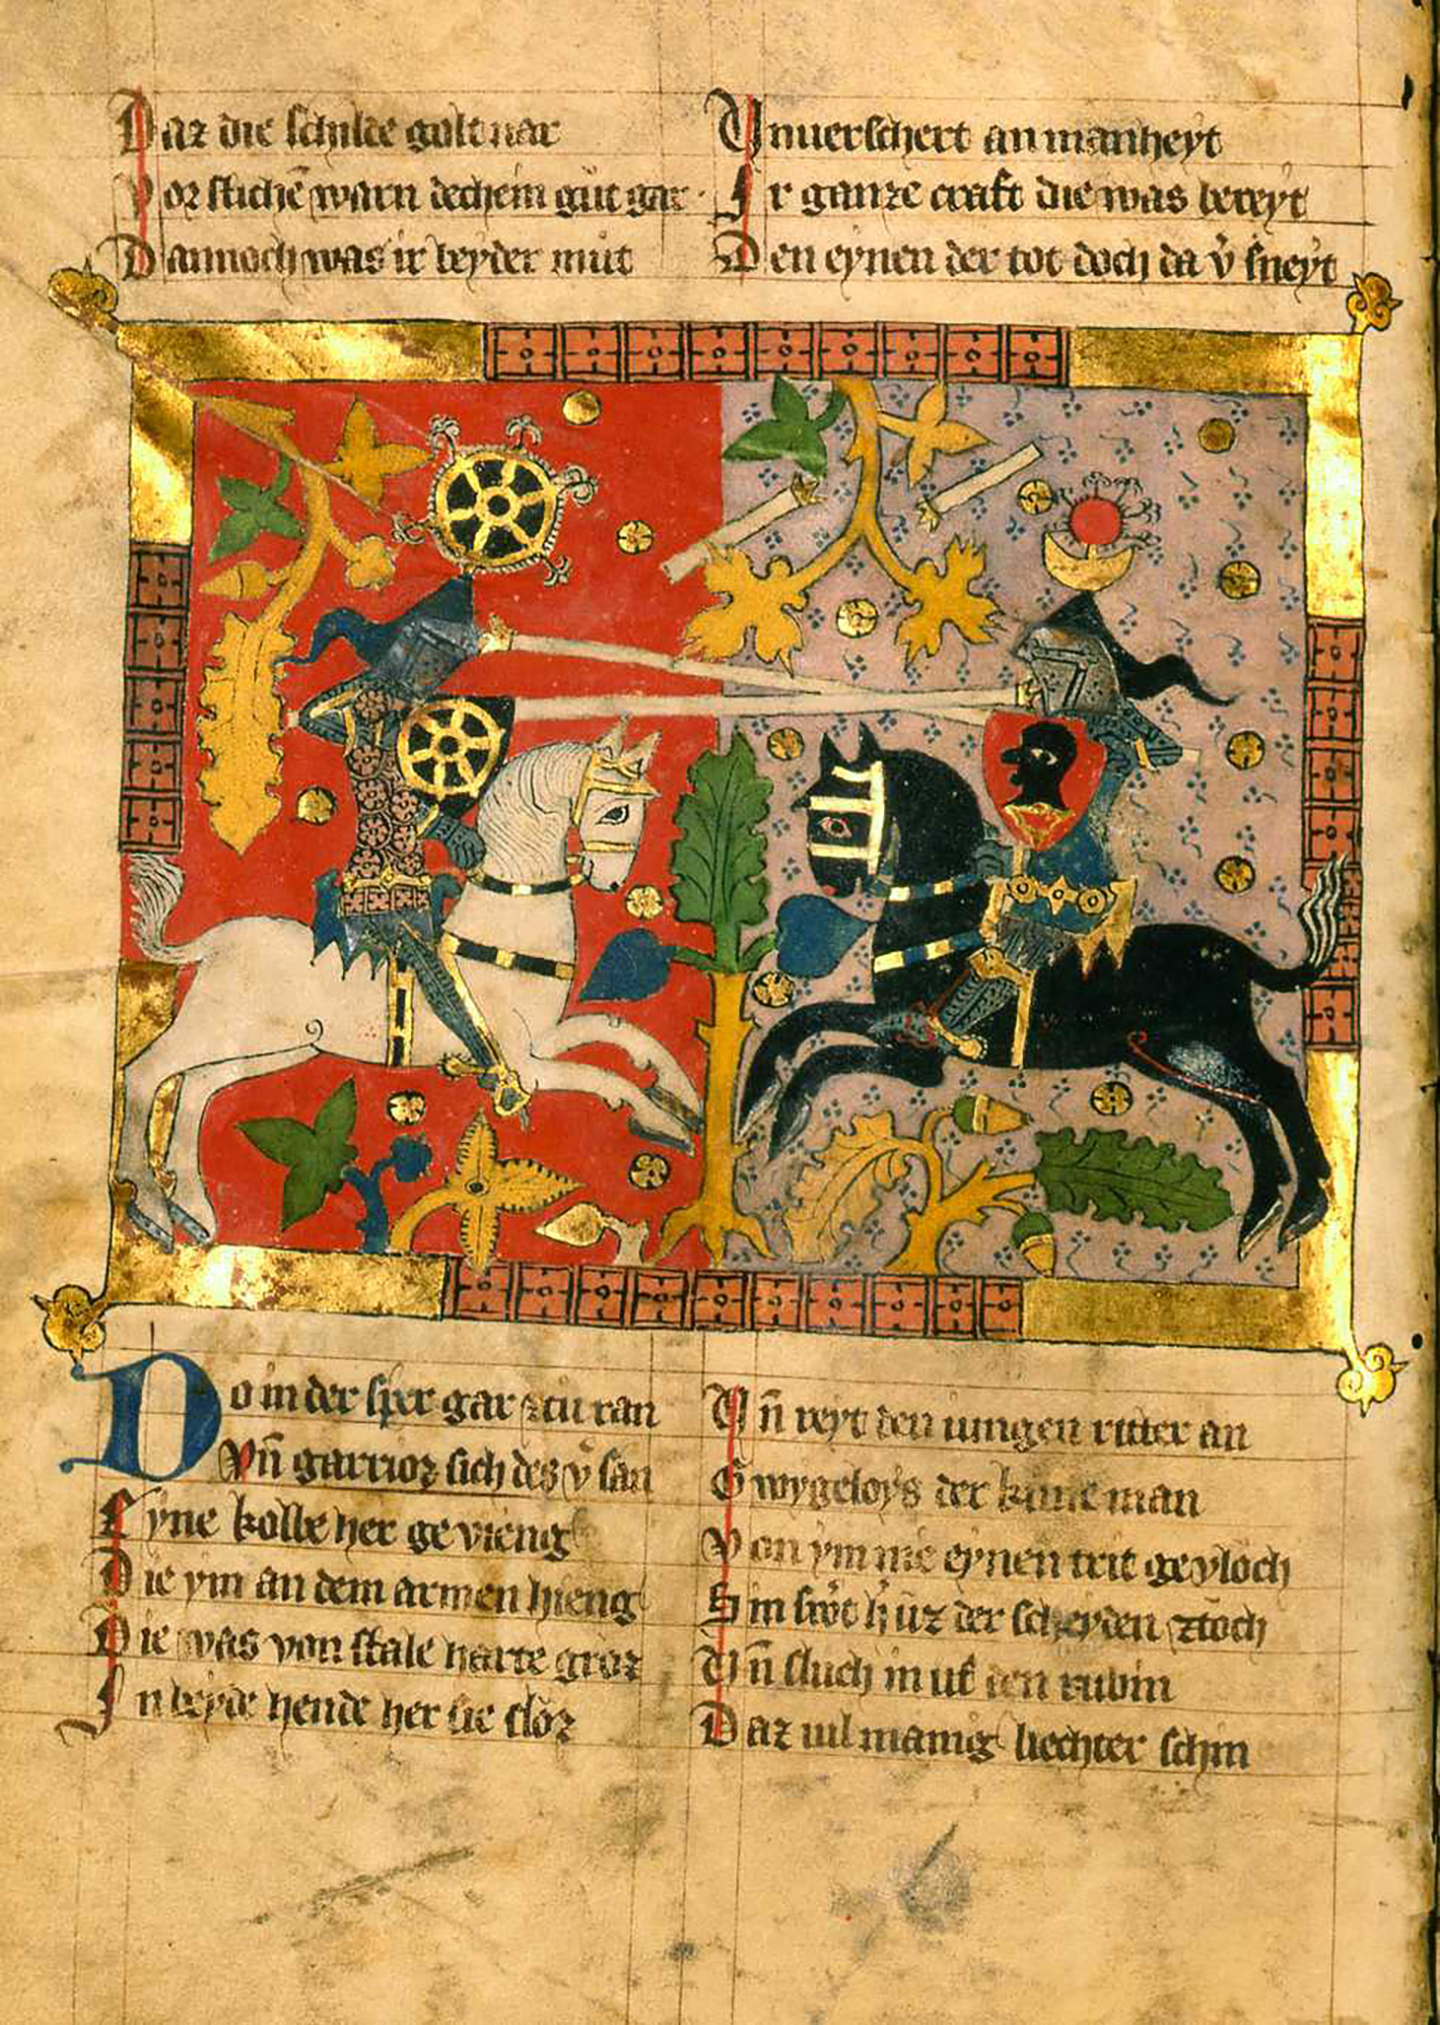 Daz die schilde golt var
Vor stichē warn dechein gůt gar
Dannoch was ir beyder můt
Vnuerschert an manheyt
Ir ganze craft die was bereyt
Den eynen der tot doch da v̾sneyt
Do in der sper gar zcu ran
Vn̄ garrioz sich des v̾san
Eyne kolbe her ge vieng
Die ym an dem armen hieng
Die was von stale harte groz
In beyde hende her sie sloz
Vn̄ reyt den iungen ritter an
Gwygeloys der kune man
Von ym nie eynen trit gevloch
Sin swͦt h̾ uz der scheyden ztoch
Vn̄ sluch in uf den rubin
Daz vil manig liechter schin